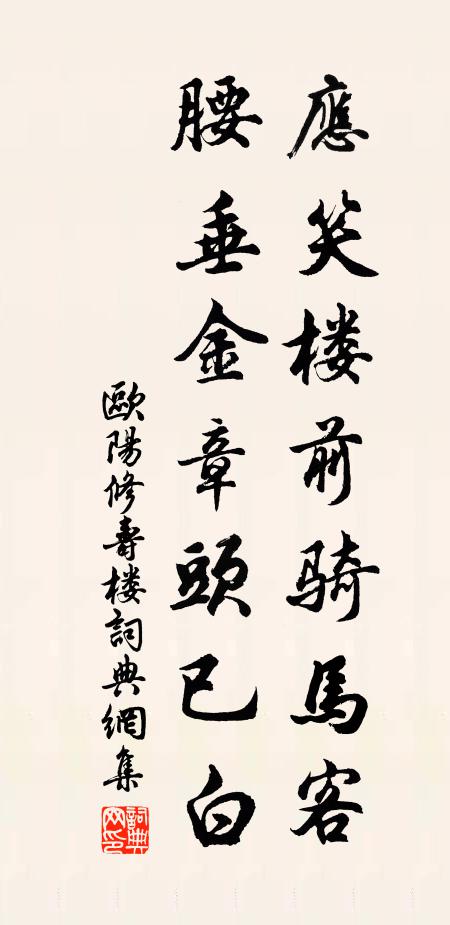 應笑楼前騎馬客
腰垂金章頭已白
歐陽修壽楼詞典網集
詞典网印